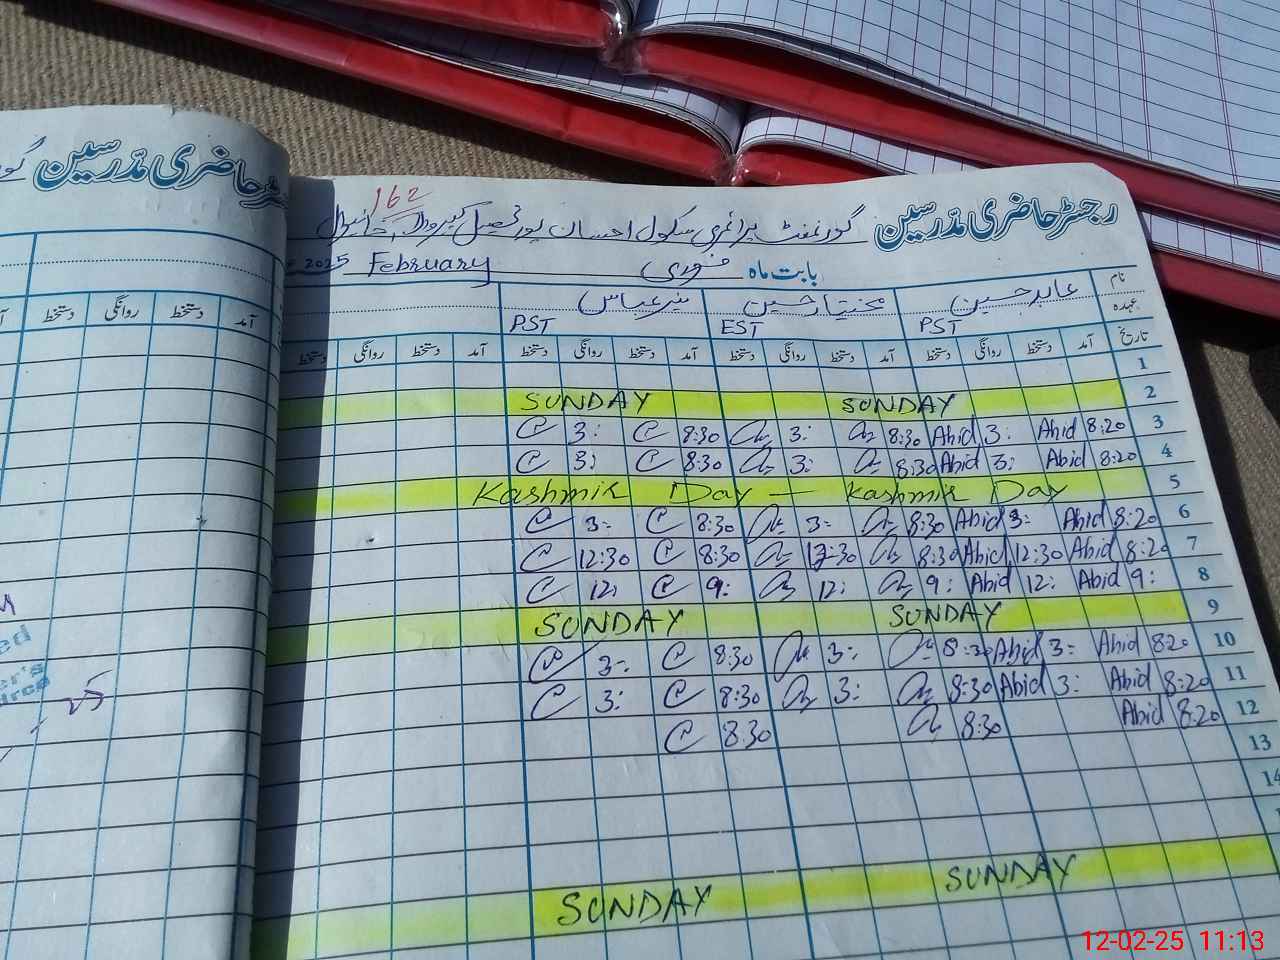 رجسٹر حاضری مدرسین
162
رجسٹر حاضری مدرسین گورنمنٹ پرائمری سکول احسان پور تحصیل کبیروالا خانیوال
بابت ماہ فروری February 2025
نام عابد حسین مختیار حسین
عہدہ PST EST PST
تاریخ آمد دستخط روانگی دستخط آمد دستخط روانگی دستخط آمد دستخط روانگی دستخط آمد دستخط روانگی دستخط
آمد دستخط روانگی دستخط
1
2 SUNDAY SUNDAY
3 8:20 Abid 3: Abid 8:30 3: 8:30 3:
4 8:20 Abid 3: Abid 8:30 3: 8:30 3:
5 Kashmir Day — Kashmir Day
6 8:20 Abid 3: Abid 8:30 3: 8:30 3:
7 8:20 Abid 12:30 Abid 8:30 12:30 8:30 12:30
8 9: Abid 12: Abid 9: 12: 9: 12:
9 SUNDAY SUNDAY
10 8:20 Abid 3: Abid 8:30 3: 8:30 3:
11 8:20 Abid 3: Abid 8:30 3: 8:30 3:
12 8:20 Abid 8:30 8:30
13
14
SUNDAY SUNDAY
12-02-25 11:13